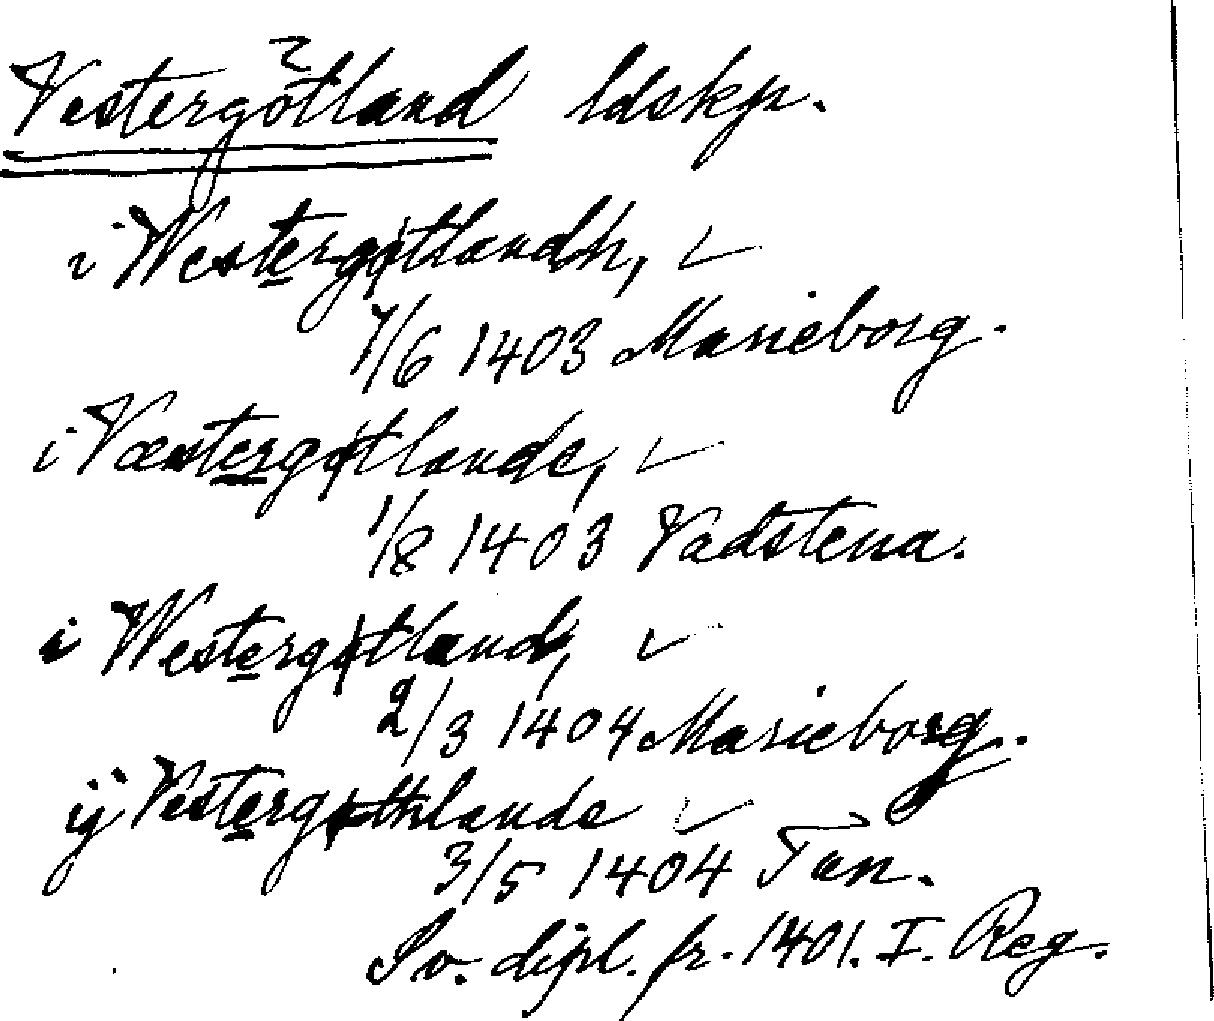 Vestergötland ldskp.
i Westergøtlandh,
7/6 1403 Marieborg.
i Væstergøtlande,
1/8 1403 Vadstena.
i Westergøtland,
2/3 1404 Marieborg.
ij Vestergøthlande
3/5 1404 Tun.
Sv. dipl. fr. 1401. I. Reg.